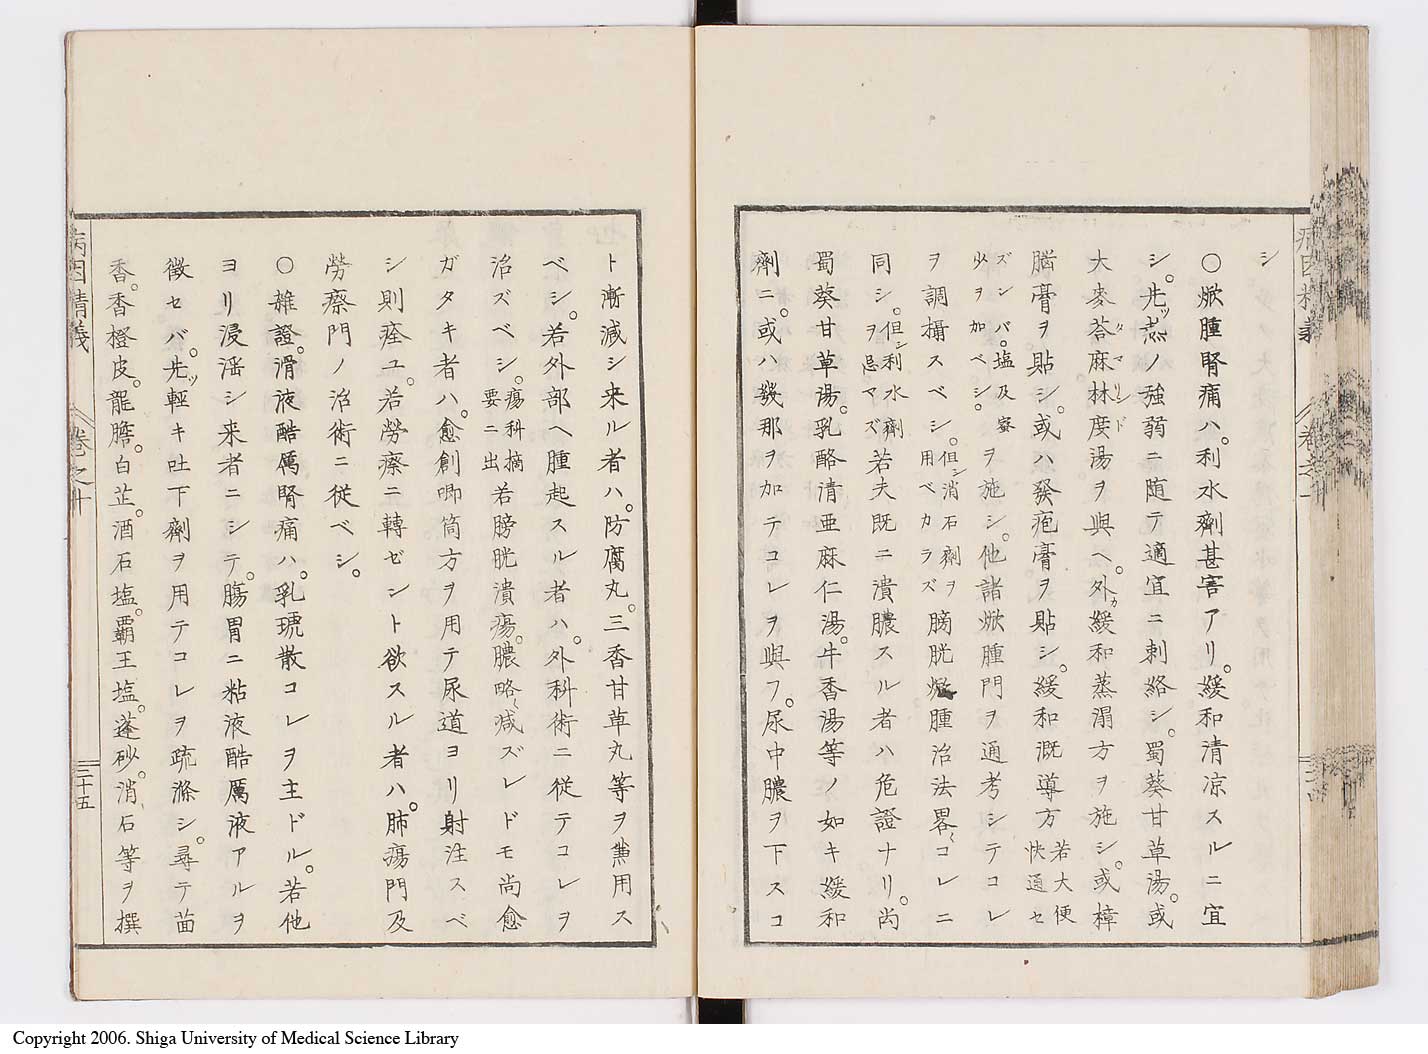 シ
〇焮腫腎痛ハ。利水劑甚害アリ。緩和清凉スルニ宜
シ。先ッ𤍠ノ強弱ニ随テ適宜ニ刺絡シ。蜀葵甘草湯。或
大麥荅麻林度湯ヲ與ヘ。外カ緩和蒸溻方ヲ施シ。或樟
脳膏ヲ貼シ。或ハ發疱膏ヲ貼シ。緩和漑導方若大便快通セ
ズンバ。塩及蜜少ヲ加ベシ。ヲ施シ。他諸焮腫門ヲ通考シテコレ
ヲ調攝スベシ。但シ消石劑ヲ用ベカラズ膀胱焮腫治法畧〻コレニ
同シ。但シ利水劑ヲ忌マズ若夫既ニ潰膿スル者ハ危證ナリ。尚
蜀葵甘草湯。乳酪清亜麻仁湯。牛香湯等ノ如キ緩和
劑ニ。或ハ幾那ヲ加テコレヲ與フ。尿中膿ヲ下スコ
ト漸減シ来ル者ハ。防腐丸。三香甘草丸等ヲ兼用ス
ベシ。若外部ヘ腫起スル者ハ。外科術ニ従テコレヲ
治ズベシ。瘍科摘要ニ出若膀胱潰瘍。膿略〻減ズレドモ尚愈
ガタキ者ハ。愈創喞筒方ヲ用テ尿道ヨリ射注スベ
シ則痊ユ。若勞瘵ニ轉ゼント欲スル者ハ。肺瘍門及
勞瘵門ノ治術ニ従ベシ。
〇雑證。滑液酷厲腎痛ハ。乳琥散コレヲ主ドル。若他
ヨリ浸淫シ来者ニシテ。腸胃ニ粘液酷厲液アルヲ
徴セバ。先ッ輕キ吐下劑ヲ用テコレヲ疏滌シ。尋テ茴
香。香橙皮。龍膽。白芷。酒石塩。覇王塩。蓬砂。消石等ヲ撰
病因精義
巻之十
二十五